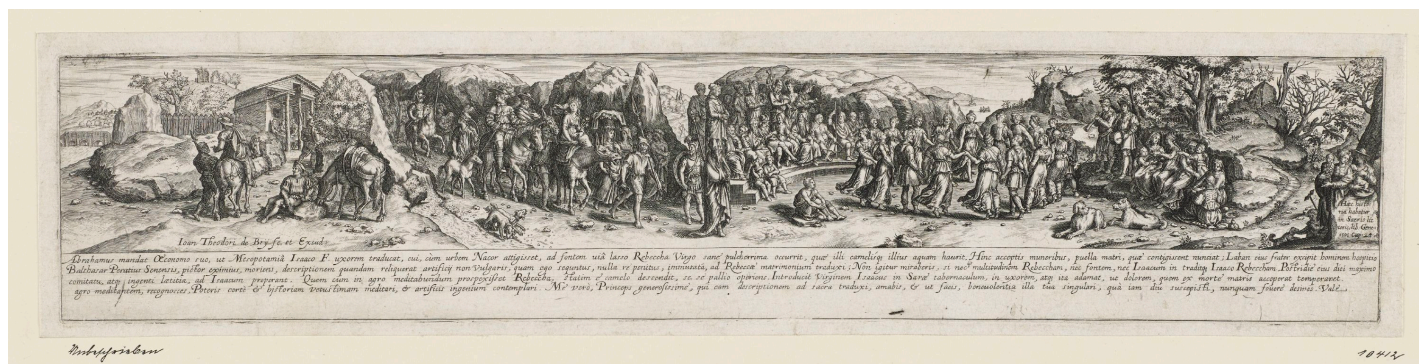 Ioan Theodori de Bry fe. et Excud:
Hæc histo
ria habetur
in Sacris lit
teris, lib. Gene
seos, cap. 24.
Abrahamus mandat Œconomo suo, ut Mesopotamiâ Isaaco F. uxorem traducat, cui, cùm urbem Nacor attigisset, ad fontem viâ lasso Rebeccha Virgo sanè pulcherrima occurrit, quæ illi camelisq; illius aquam haurit. Hinc acceptis muneribus, puella matri, quæ contigissent nunciat; Laban eius frater excipit hominem hospitio
Balthasar Perutius Senensis, pictor eximius, moriens, descriptionem quandam reliquerat artificij non vulgaris, quam ego sequutus, nulla re penitus imminuta, ad Rebeccæ matrimonium traduxi; Non igitur miraberis, si nec multitudinem Rebeccham, nec fontem, nec Isaacum in traditp Isaaco Rebeccham. Postridie eius diei maximo
comitatu, atq; ingenti lætitia, ad Isaacum properant. Quem cùm in agro meditabundum prospexisset Rebeccha, statim è camelo descendit, ac se pallio operiens. Introducit Virginem Isaacus in Saræ tabernaculum, in uxorem, atq; ita adamat, ut dolorem, quem ex morte matris acceperat temperaret.
agro meditantem, recognosces. Poteris certè & historiam vetustissimam meditari, & artificis ingenium contemplari. Me verò, Princeps generosissime, qui eam descriptionem ad sacra traduxi, amabis, & ut facis, benevolentia illa tua singulari, quâ iam diu suscepisti, nunquam fovere desines. Vale.
Unbeschrieben
10412